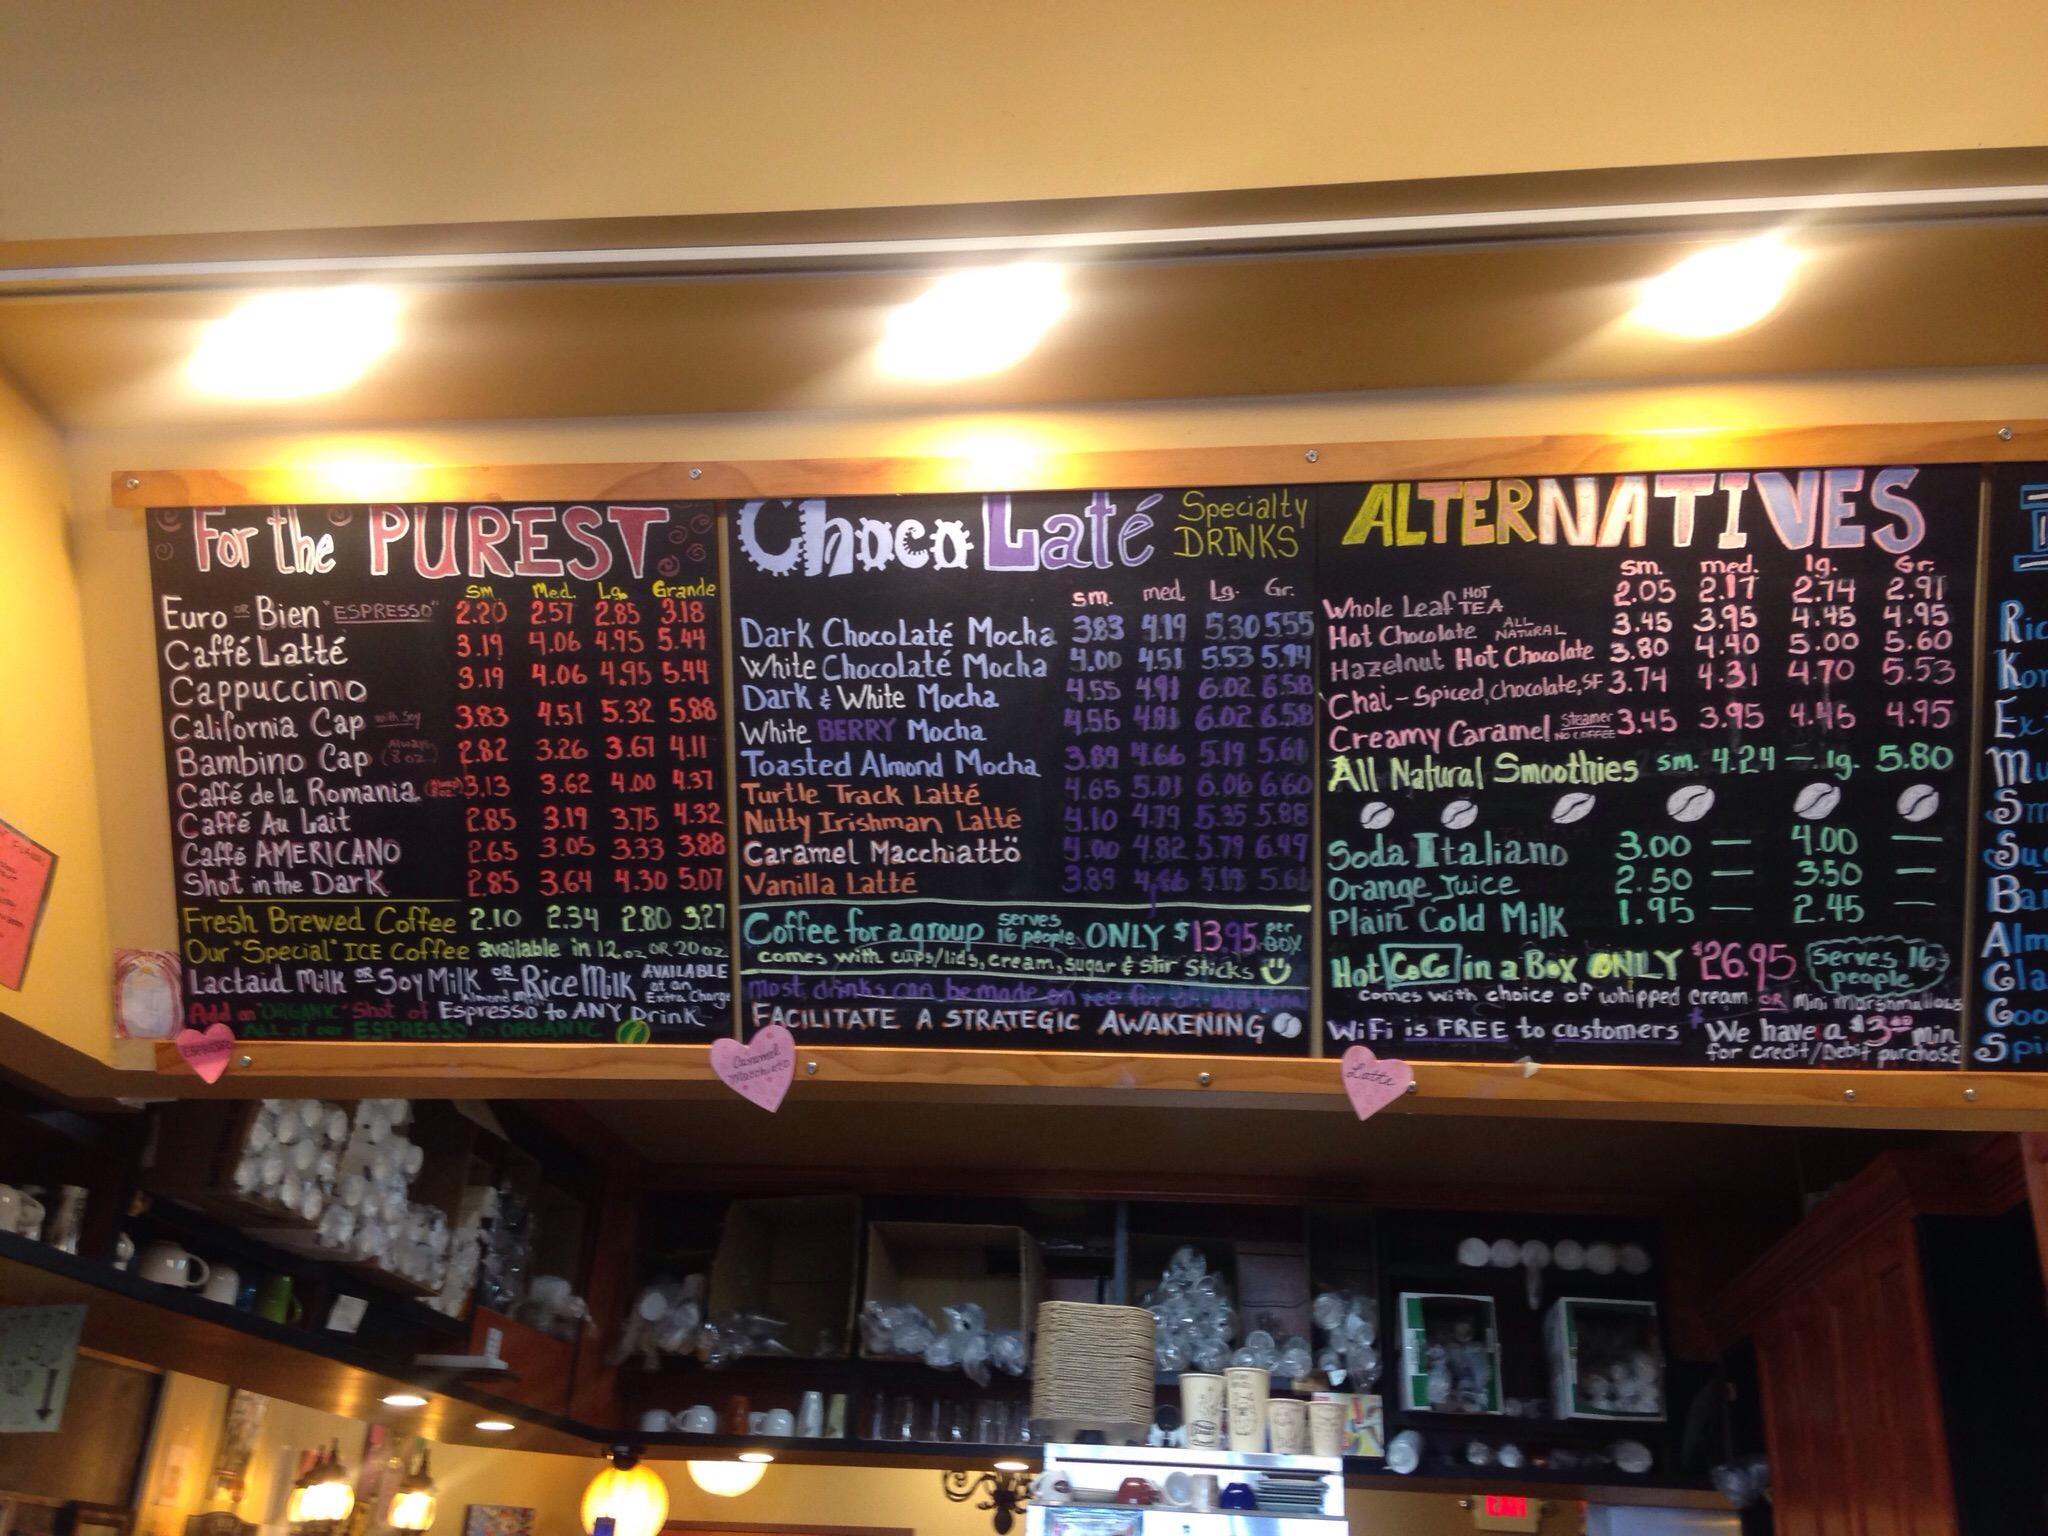 For the PUREST
Sm Med. Lg. Grande
Euro or Bien "ESPRESSO" 2.20 2.57 2.85 3.18
Caffé Latté 3.19 4.06 4.95 5.44
Cappuccino 3.19 4.06 4.95 5.44
California Cap with Soy 3.83 4.51 5.32 5.88
Bambino Cap (Always 8 oz) 2.82 3.26 3.67 4.11
Caffé de la Romania 3.13 3.62 4.00 4.37
Caffé Au Lait 2.85 3.19 3.75 4.32
Caffé AMERICANO 2.65 3.05 3.33 3.88
Shot in the Dark 2.85 3.64 4.30 5.07
Fresh Brewed Coffee 2.10 2.34 2.80 3.27
Our "Special" ICE Coffee available in 12oz OR 20oz
Lactaid Milk or Soy Milk or Rice Milk AVAILABLE at an Extra Charge
Almond milk
Add an "ORGANIC" Shot of Espresso to ANY Drink
ALL of our ESPRESSO is ORGANIC
ESPRESSO
ChocoLaté Specialty DRINKS
sm. med. Lg. Gr.
Dark ChocoLaté Mocha 3.83 4.19 5.30 5.55
White ChocoLaté Mocha 4.00 4.51 5.53 5.94
Dark & White Mocha 4.55 4.91 6.02 6.58
White BERRY Mocha 4.55 4.91 6.02 6.58
Toasted Almond Mocha 3.89 4.66 5.19 5.61
Turtle Track Latté 4.65 5.01 6.06 6.60
Nutty Irishman Latté 4.10 4.79 5.35 5.88
Caramel Macchiattö 4.00 4.82 5.79 6.49
Vanilla Latté 3.89 4.66 5.19 5.61
Coffee for a group serves 16 people ONLY $13.95 per BOX
comes with cups/lids, cream, sugar & stir sticks
most drinks can be made on ice for an additional
FACILITATE A STRATEGIC AWAKENING
Caramel Macchiato
ALTERNATIVES
sm. med. lg. Gr.
Whole Leaf HOT TEA 2.05 2.17 2.74 2.91
Hot Chocolate ALL NATURAL 3.45 3.95 4.45 4.95
Hazelnut Hot Chocolate 3.80 4.40 5.00 5.60
Chai - Spiced, Chocolate, SF 3.74 4.31 4.70 5.53
Creamy Caramel Steamer NO COFFEE 3.45 3.95 4.45 4.95
All Natural Smoothies sm. 4.24 — lg. 5.80
Soda Italiano 3.00 — 4.00 —
Orange Juice 2.50 — 3.50 —
Plain Cold Milk 1.95 — 2.45 —
Hot CoCo in a Box ONLY $26.95 Serves 16 people
comes with choice of whipped cream OR Mini Marshmallows
WiFi is FREE to customers
We have a $3.00 min
for credit/Debit purchase
Latte
EXIT